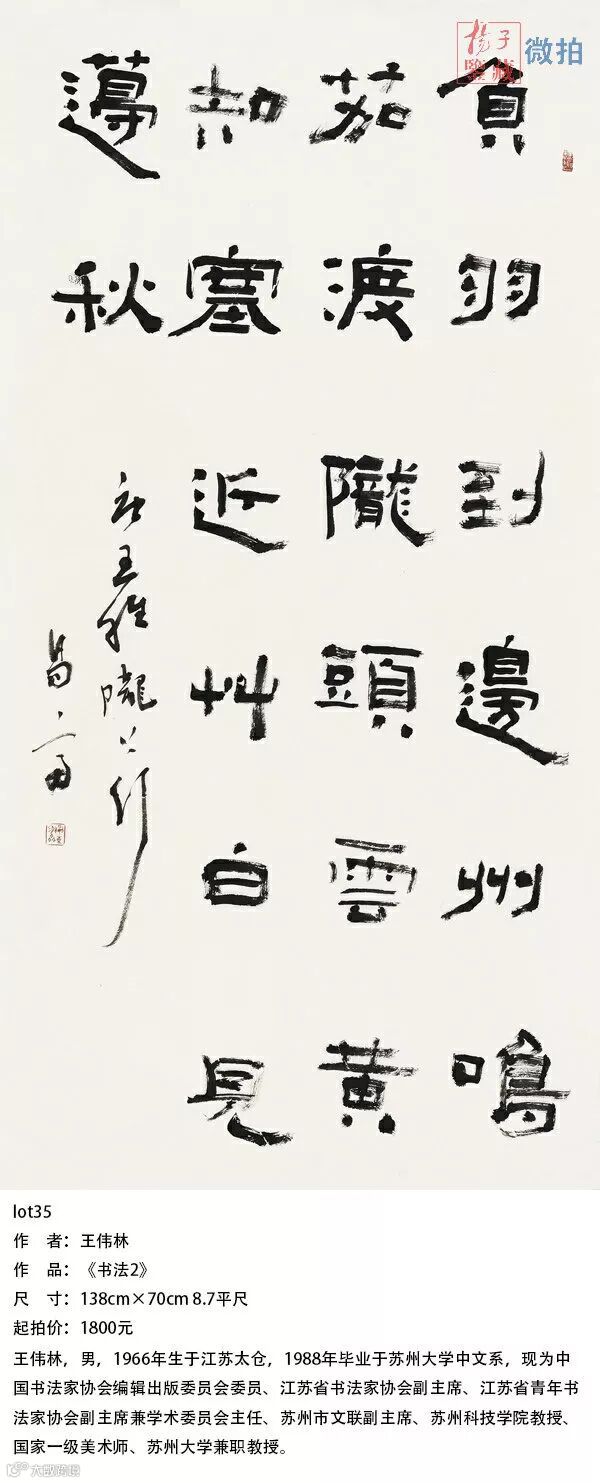 揚子
鑒藏
微拍
負羽到邊州鳴
茄渡隴頭雲黃
知塞近艸白見
邊秋
王維隴上行
lot35
作 者：王伟林
作 品：《书法2》
尺 寸：138cm×70cm 8.7平尺
起拍价：1800元
王伟林，男，1966年生于江苏太仓，1988年毕业于苏州大学中文系，现为中
国书法家协会编辑出版委员会委员、江苏省书法家协会副主席、江苏省青年书
法家协会副主席兼学术委员会主任、苏州市文联副主席、苏州科技学院教授、
国家一级美术师、苏州大学兼职教授。
大数跨境